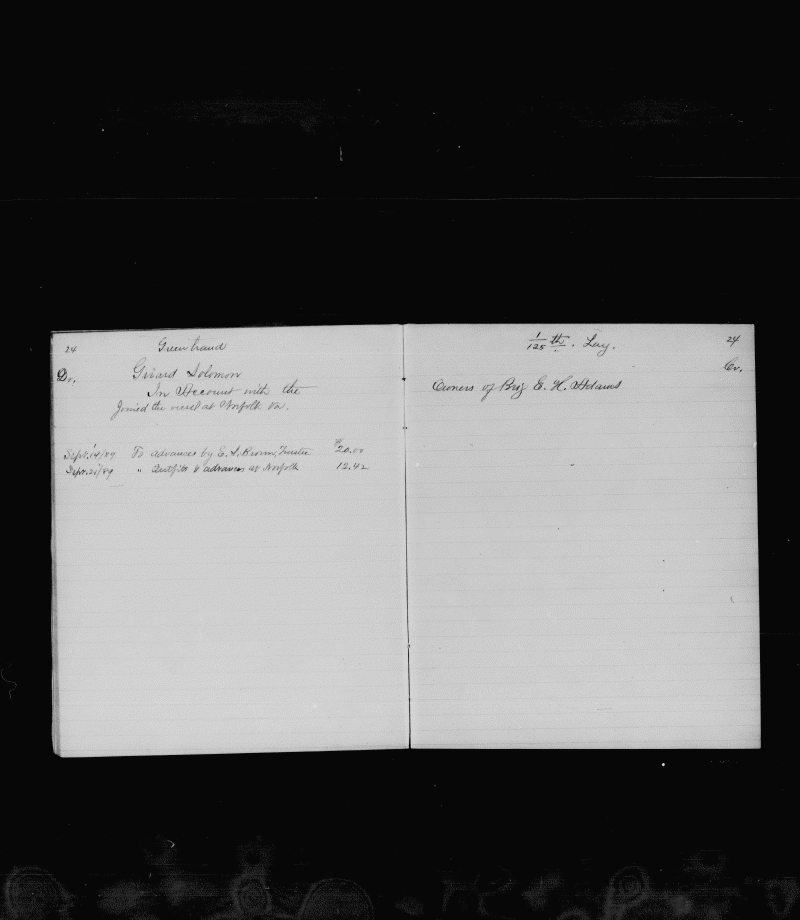 24
Green hand
Dr.
Girard Solomon
In Account with the
Joined the vessel at Norfolk Va.
Sept. 14/89 To advances by E. S. Brown, Trustee $20.00
Sept. 21/89 " Outfits & advances at Norfolk 12.42
1/125 th. Lay.
24
Cr.
Owners of Brig E. H. Adams